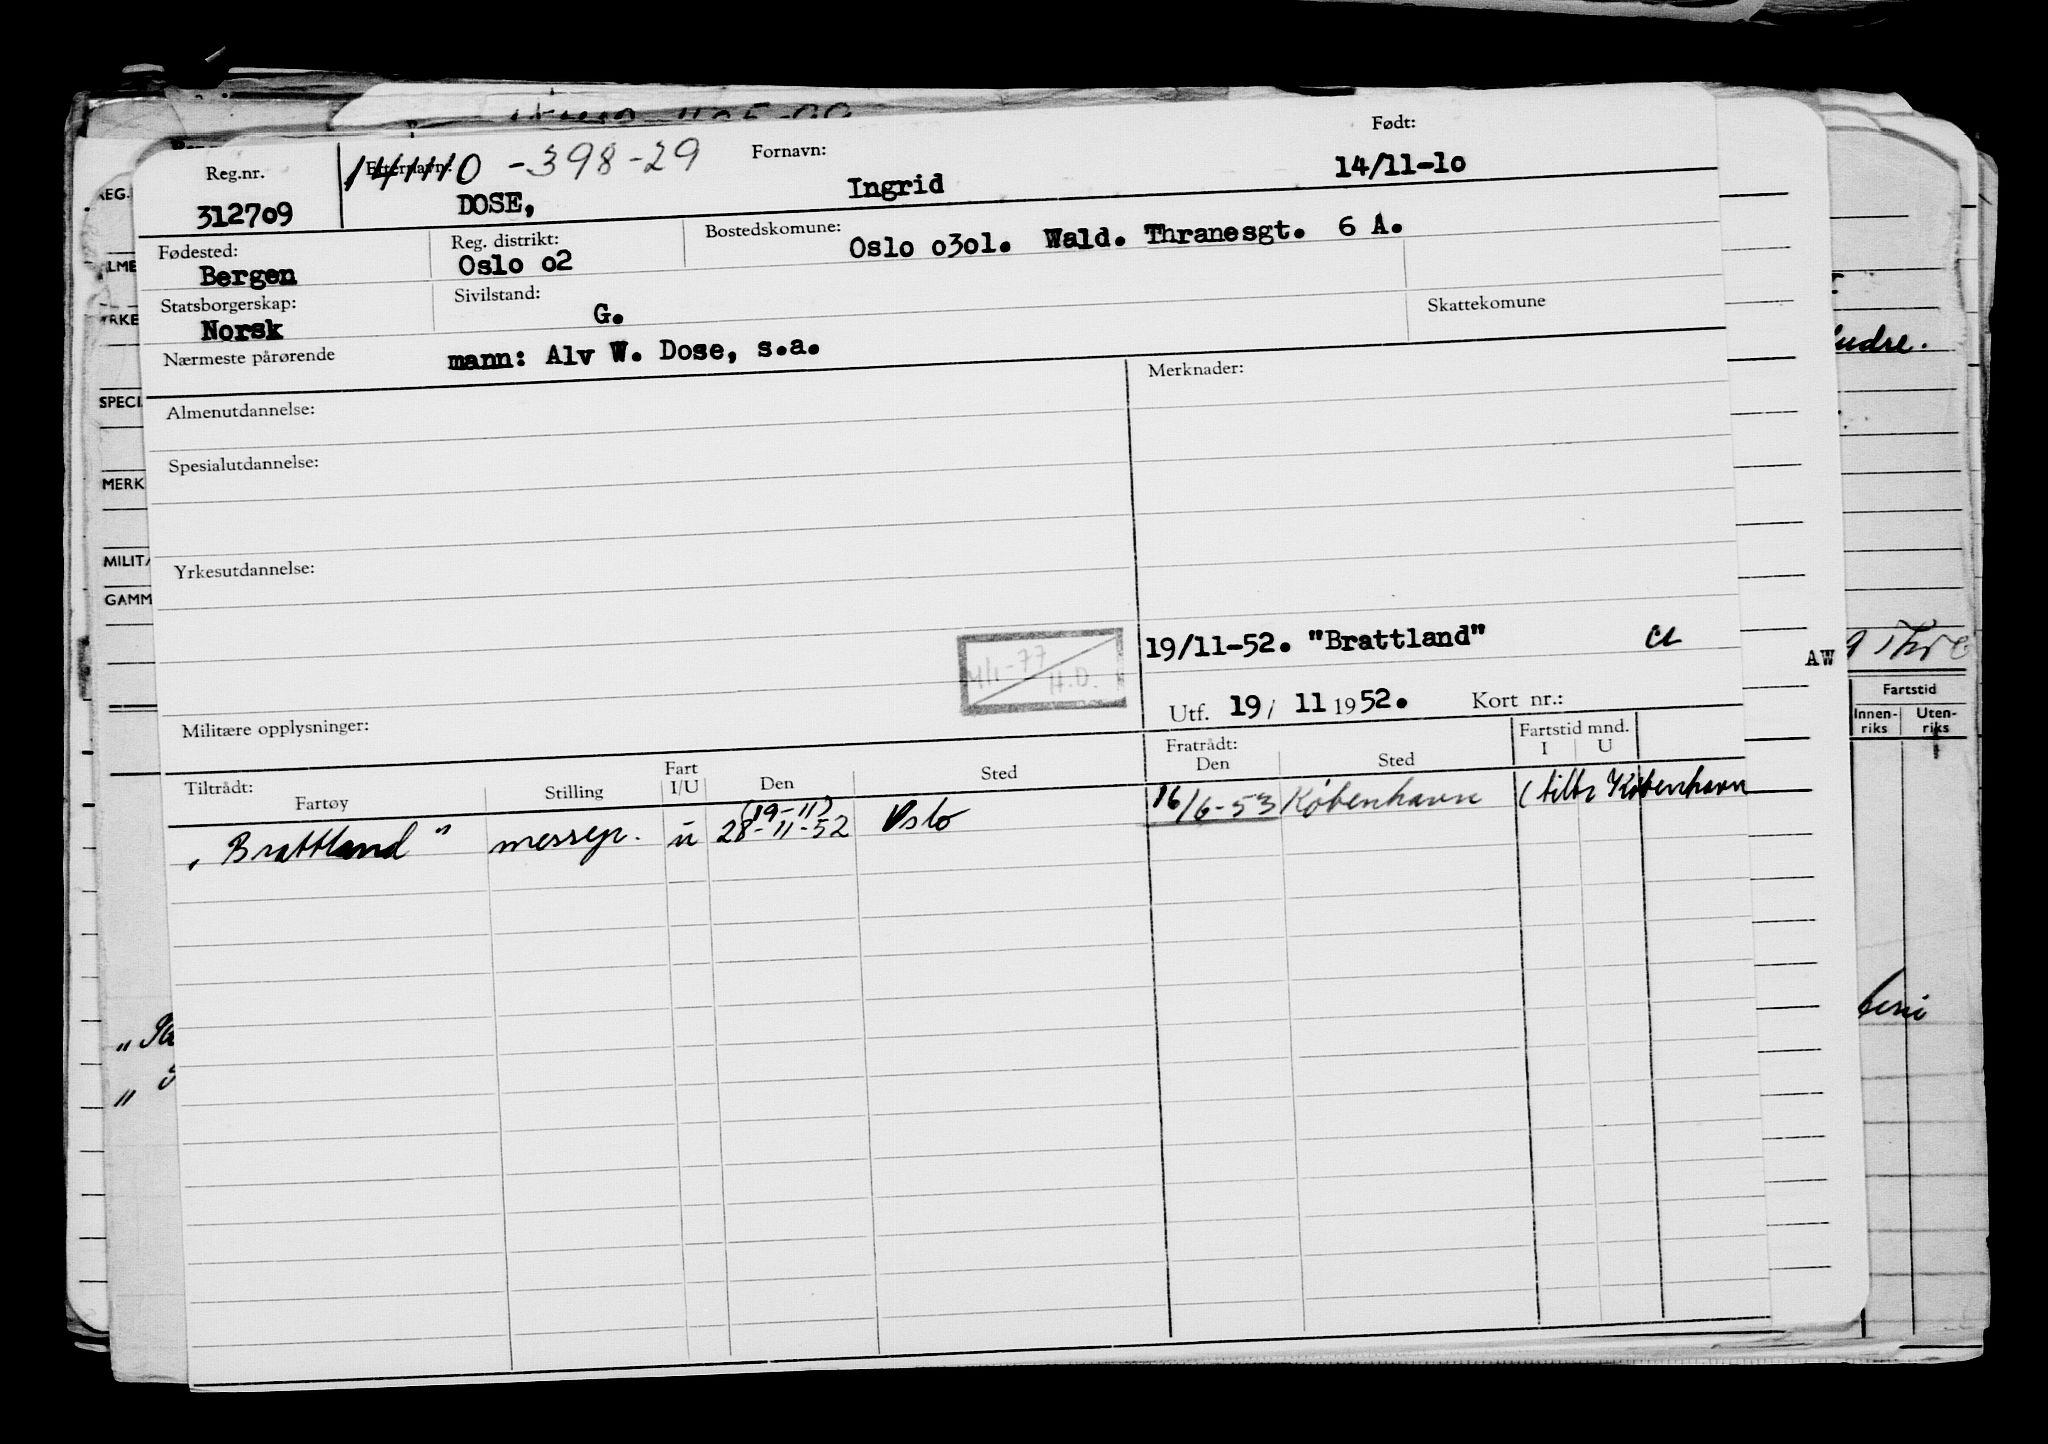 Reg.nr. Etternavn: 141110 -398-29 Fornavn: Født:
3127o9 DOSE, Ingrid 14/11-1o
Fødested: Reg. distrikt: Bostedskomune:
Bergen Oslo o2 Oslo o3o1. Wald. Thranesgt. 6 A.
Statsborgerskap: Sivilstand: Skattekomune
Norsk G.
Nærmeste pårørende mann: Alv W. Dose, s.a.
Almenutdannelse: Merknader:
Spesialutdannelse:
Yrkesutdannelse:
19/11-52. "Brattland" cl
H.D.
Utf. 19/ 11 1952. Kort nr.:
Militære opplysninger:
Tiltrådt: Fartøy Stilling Fart I/U Den Sted Fratrådt: Den Sted Fartstid mnd. I U
(19-11)
"Brattland" messep. u 28-11-52 Oslo 16/6-53 København (tilbr København
REG.
SPECI
MERK
MILITÆ
GAMM
AW
Fartstid
Innen-riks Uten-riks